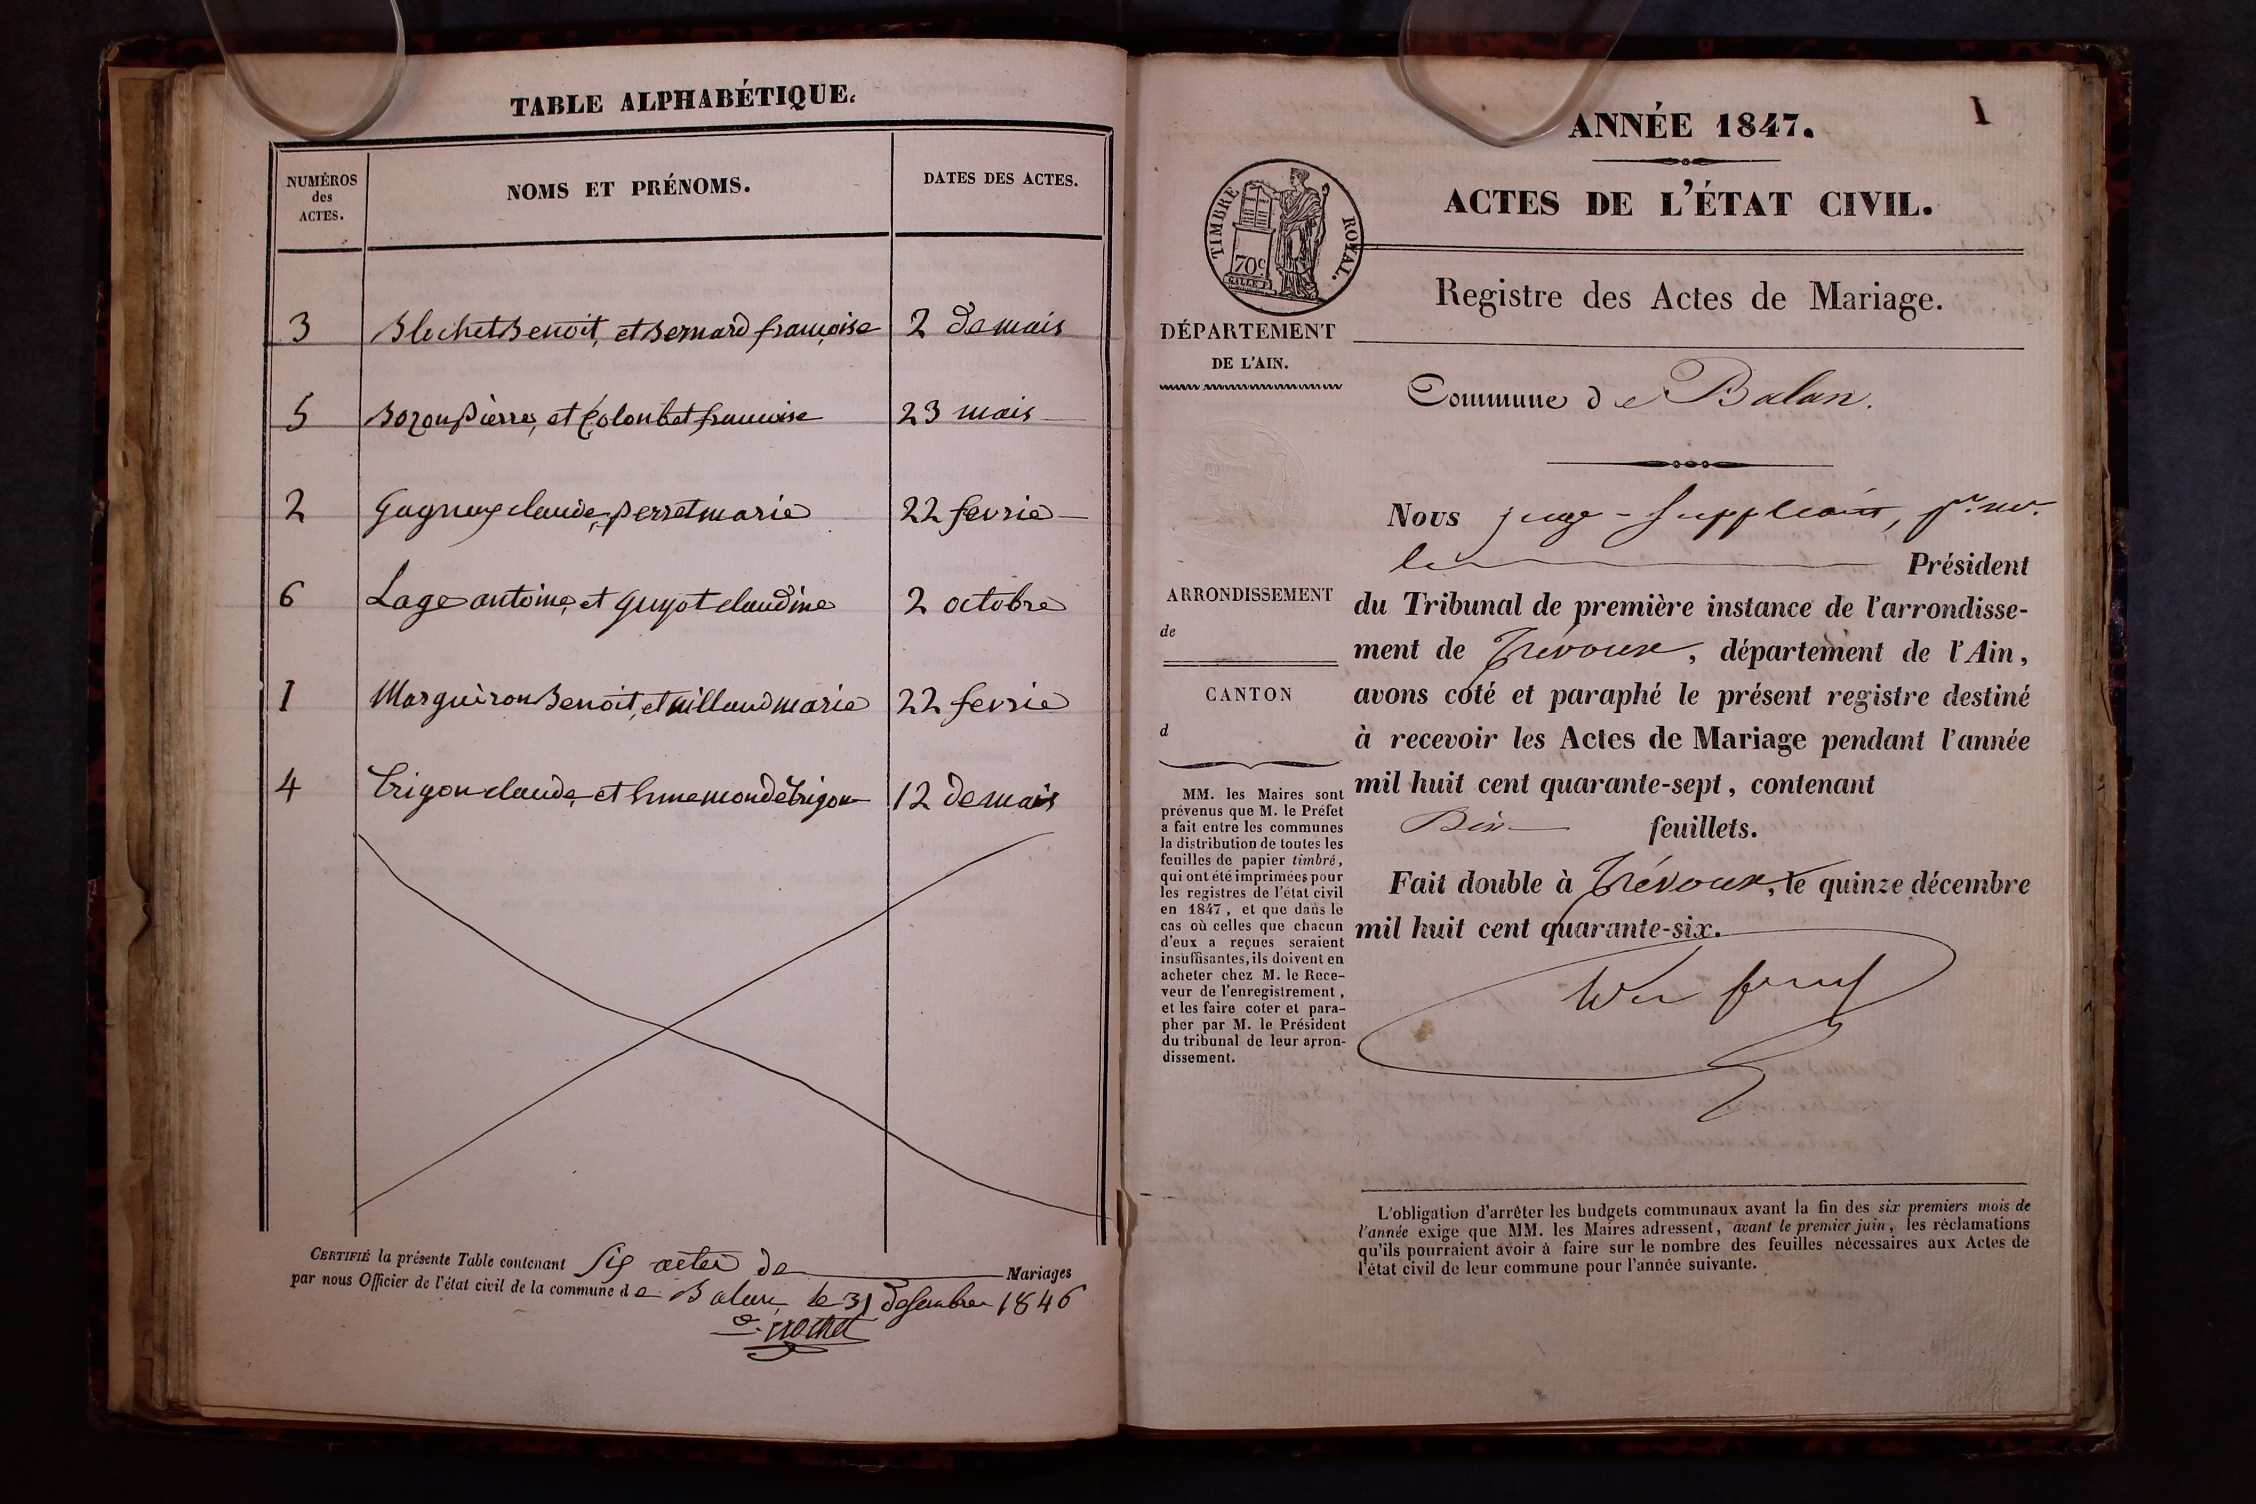 TABLE ALPHABÉTIQUE.
NUMÉROS
des
ACTES.
NOMS ET PRÉNOMS.
DATES DES ACTES.
3 Blechet Benoit, et Bernard françoise 2 de mais
5 Bozon pierre, et Colonbet francoise 23 mais
2 claude, perret marie 22 fevrie
6 Lage antoine, et guyot claudine 2 octobre
1 Marguiron Benoit, et millaud marie 22 fevrie
4 trigon claude, et trigon 12 de mais
CERTIFIÉ la présente Table contenant Six actes de Mariages
par nous Officier de l'état civil de la commune de Balan, le 31 desenbre 1846
ANNÉE 1847.
1
ACTES DE L'ÉTAT CIVIL.
TIMBRE ROYAL.
70c
Registre des Actes de Mariage.
DÉPARTEMENT
DE L'AIN.
Commune de Balan.
Nous juge-suppléant,
le Président
du Tribunal de première instance de l'arrondisse-
ment de Trévoux, département de l'Ain,
avons coté et paraphé le présent registre destiné
à recevoir les Actes de Mariage pendant l'année
mil huit cent quarante-sept, contenant
feuillets.
Fait double à Trévoux, le quinze décembre
mil huit cent quarante-six.
ARRONDISSEMENT
de
CANTON
d
MM. les Maires sont
prévenus que M. le Préfet
a fait entre les communes
la distribution de toutes les
feuilles de papier timbré,
qui ont été imprimées pour
les registres de l'état civil
en 1847, et que dans le
cas où celles que chacun
d'eux a reçues seraient
insuffisantes, ils doivent en
acheter chez M. le Rece-
veur de l'enregistrement,
et les faire coter et para-
pher par M. le Président
du tribunal de leur arron-
dissement.
L'obligation d'arrêter les budgets communaux avant la fin des six premiers mois de
l'année exige que MM. les Maires adressent, avant le premier juin, les réclamations
qu'ils pourraient avoir à faire sur le nombre des feuilles nécessaires aux Actes de
l'état civil de leur commune pour l'année suivante.